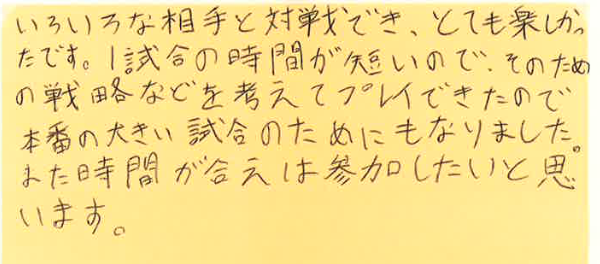 いろいろな相手と対戦でき、とても楽しかっ
たです。1試合の時間が短いので、そのため
の戦略などを考えてプレイできたので
本番の大きい試合のためにもなりました。
また時間が合えば参加したいと思
います。